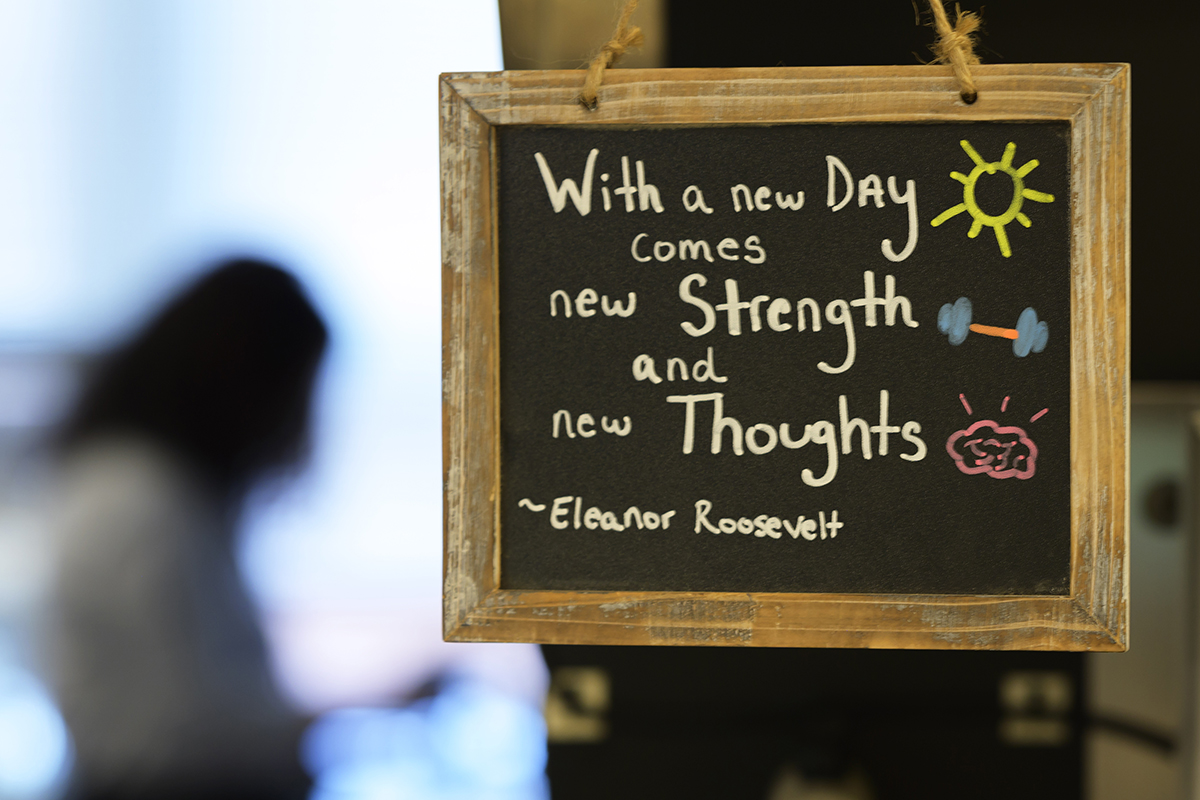 With a new DAy
comes
new Strength
and
new Thoughts
~Eleanor Roosevelt